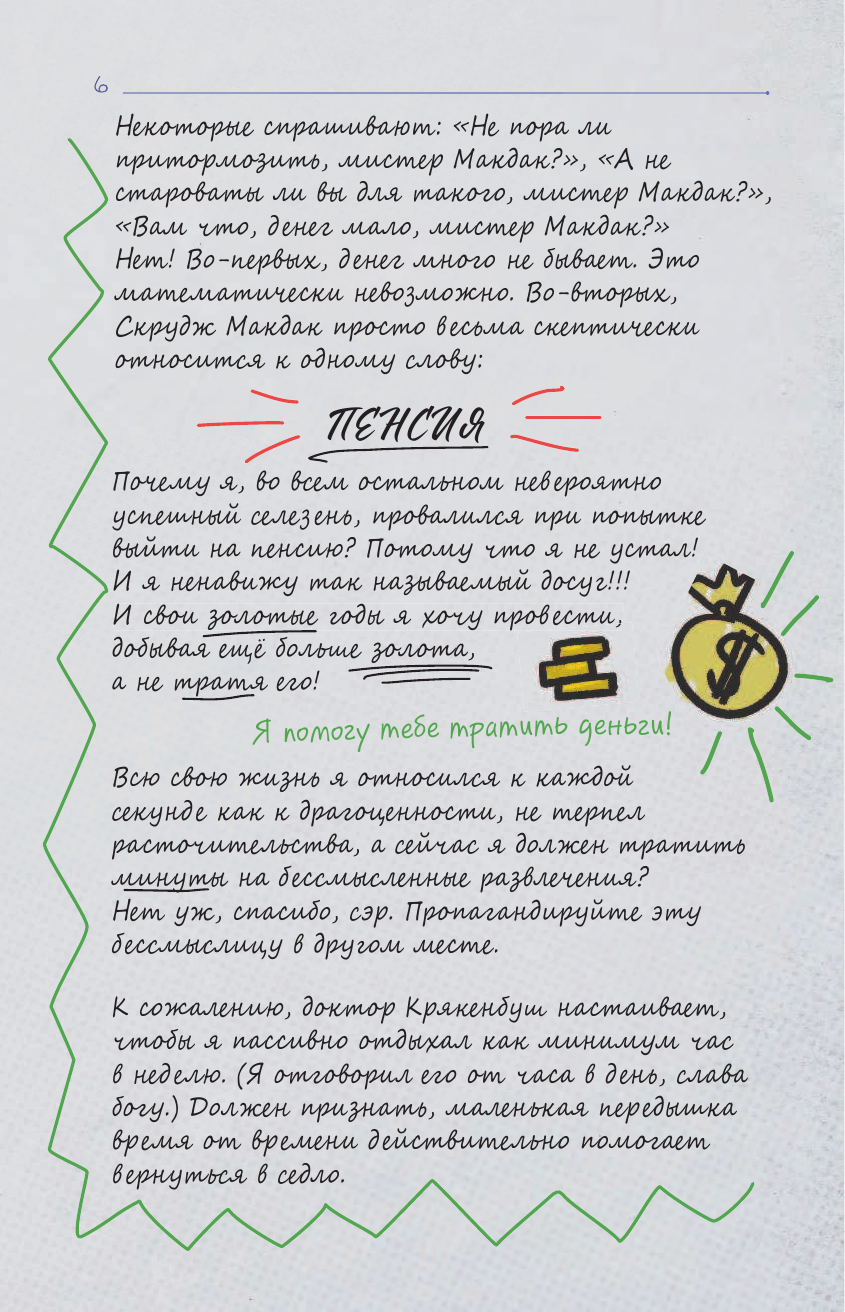 6
Некоторые спрашивают: «Не пора ли
притормозить, мистер Макдак?», «А не
староваты ли вы для такого, мистер Макдак?»,
«Вам что, денег мало, мистер Макдак?»
Нет! Во-первых, денег много не бывает. Это
математически невозможно. Во-вторых,
Скрудж Макдак просто весьма скептически
относится к одному слову:
ПЕНСИЯ
Почему я, во всем остальном невероятно
успешный селезень, провалился при попытке
выйти на пенсию? Потому что я не устал!
И я ненавижу так называемый досуг!!!
И свои золотые годы я хочу провести,
добывая ещё больше золота,
а не тратя его!
$
Я помогу тебе тратить деньги!
Всю свою жизнь я относился к каждой
секунде как к драгоценности, не терпел
расточительства, а сейчас я должен тратить
минуты на бессмысленные развлечения?
Нет уж, спасибо, сэр. Пропагандируйте эту
бессмыслицу в другом месте.
К сожалению, доктор Крякенбуш настаивает,
чтобы я пассивно отдыхал как минимум час
в неделю. (Я отговорил его от часа в день, слава
богу.) Должен признать, маленькая передышка
время от времени действительно помогает
вернуться в седло.